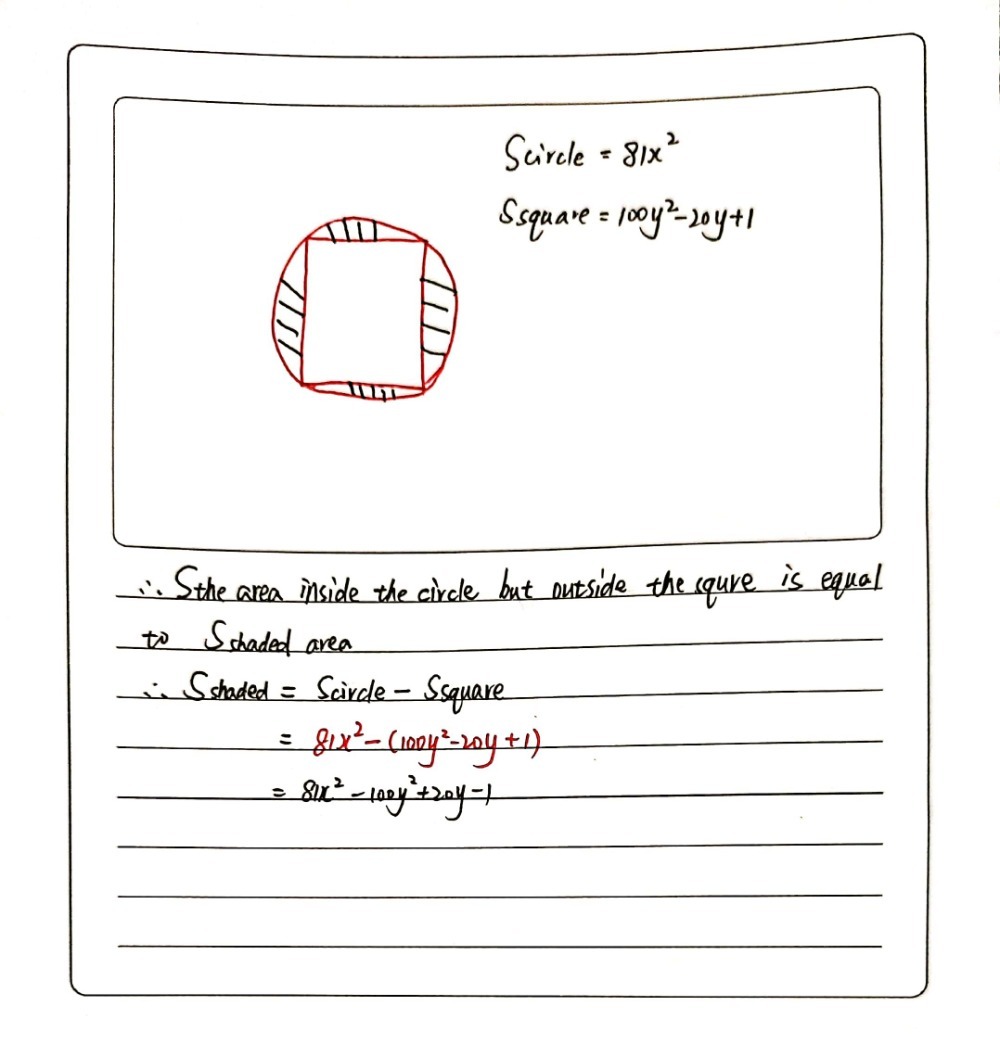 Scircle = 81x²
Ssquare = 100y²-20y+1
∴ Sthe area inside the circle but outside the squre is equal
to Sshaded area
∴ Sshaded = Scircle - Ssquare
= 81x²-(100y²-20y+1)
= 81x²-100y²+20y-1